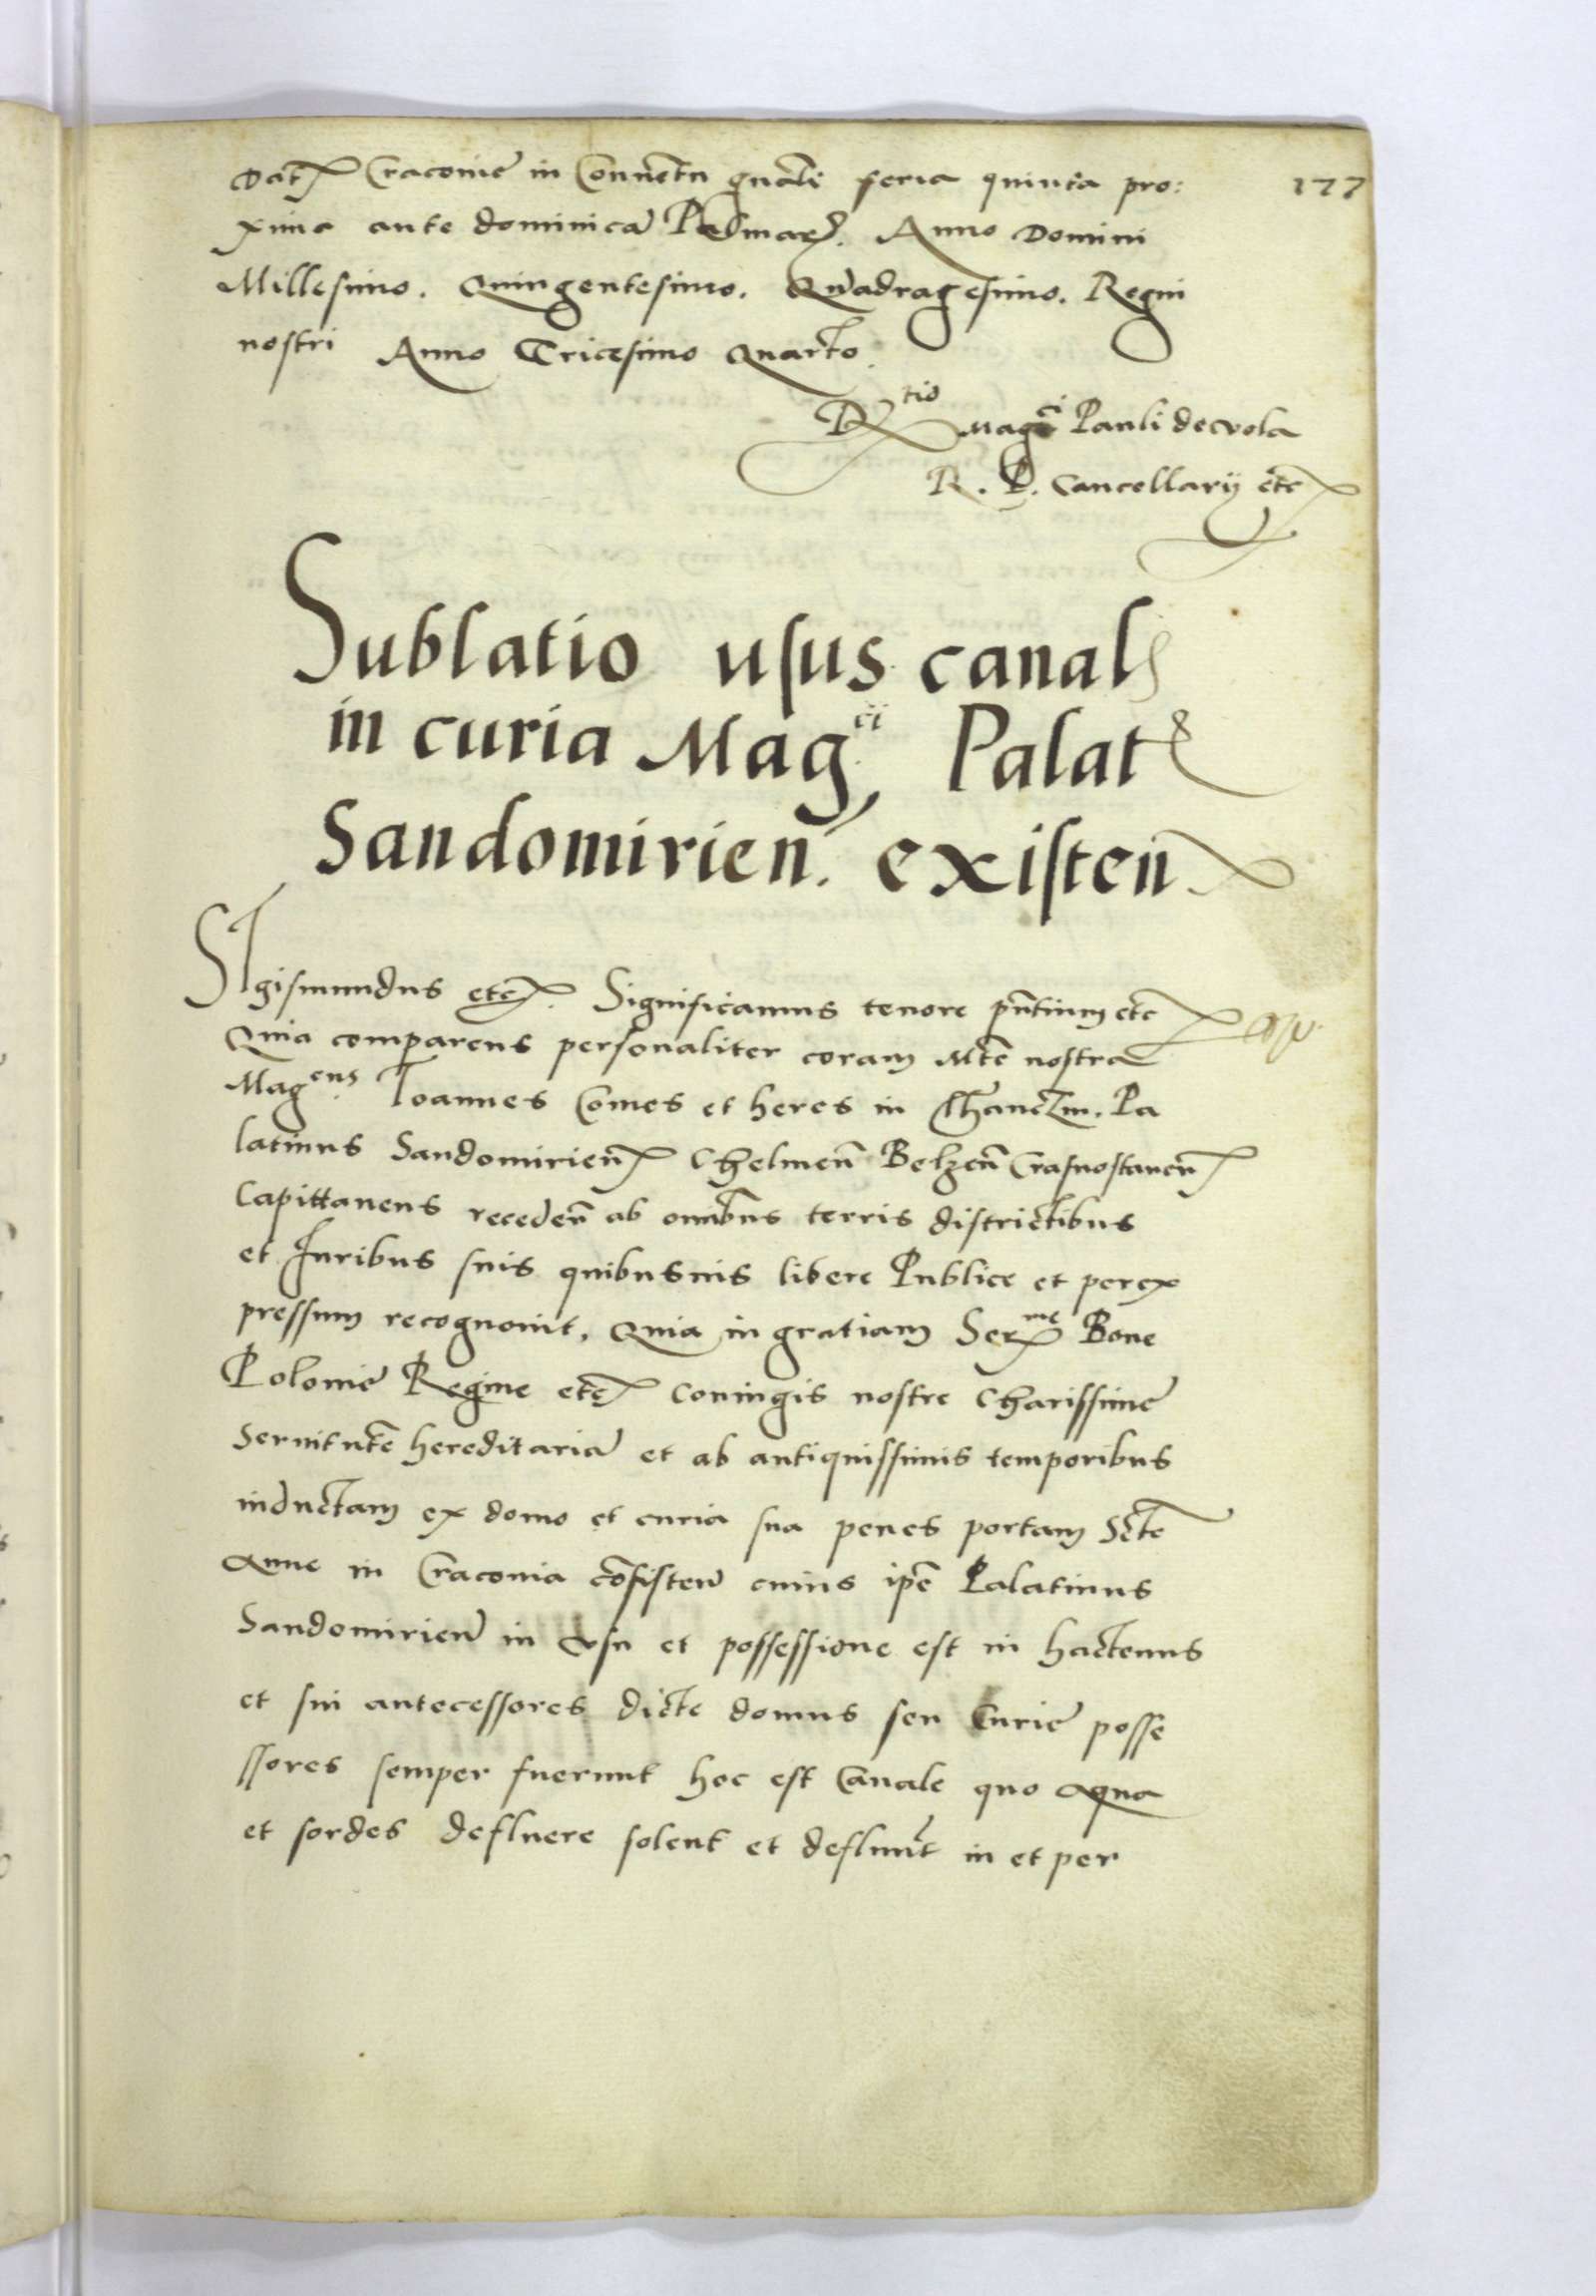 Dat Cracovie in Conventu gnali feria quinta pro:
177
xima ante dominica Palmar. Anno Domini
Millesimo. Quingentesimo. Quadragesimo. Regni
nostri Anno Tricesimo Quarto.
Rtio Magci Pauli de vola
R. P. Cancellarij etc
Sublatio usus canal
in curia Magci Palat
Sandomirien. existen
SIgismundus etc. Significamus tenore pntium etc
Quia comparens personaliter coram Mte nostra
Magcus Ioannes Comes et heres in Thanczin. Pa
latinus Sandomirien Chelmen Belzen Crasnostauen
Capittaneus receden ab omibus terris districtibus
et Iuribus suis quibusuis libere Publice et perex
pressum recognouit, quia in gratiam Serme Bone
Polonie Regine etc Coniugis nostre Charissime
Seruitute hereditaria et ab antiquissimis temporibus
inductam ex domo et curia sua penes portam Scte
Anne in Cracouia cosisten cuius ipe Palatinus
Sandomirien in vsu et possessione est in hactenus
et sui antecessores dicte domus seu Curie posse
ssores semper fuerunt hoc est Canale quo aqua
et sordes defluere solent et defluut in et per